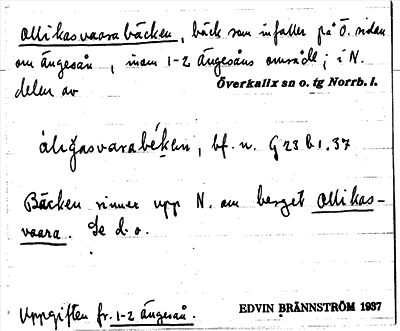 Ollikasvaarabäcken, bäck som infaller på Ö. sidan
om Ängesån, inom 1-2 Ängesåns område; i N.
delen av Överkalix sn o. tg Norrb. l.
áliǧasvarabékɛn, bf. n. G 23 b 1.37
Bäcken rinner upp N. om berget Ollikas-
vaara. Se d. o.
Uppgiften fr. 1-2 Ängesån.
EDVIN BRÄNNSTRÖM 1937